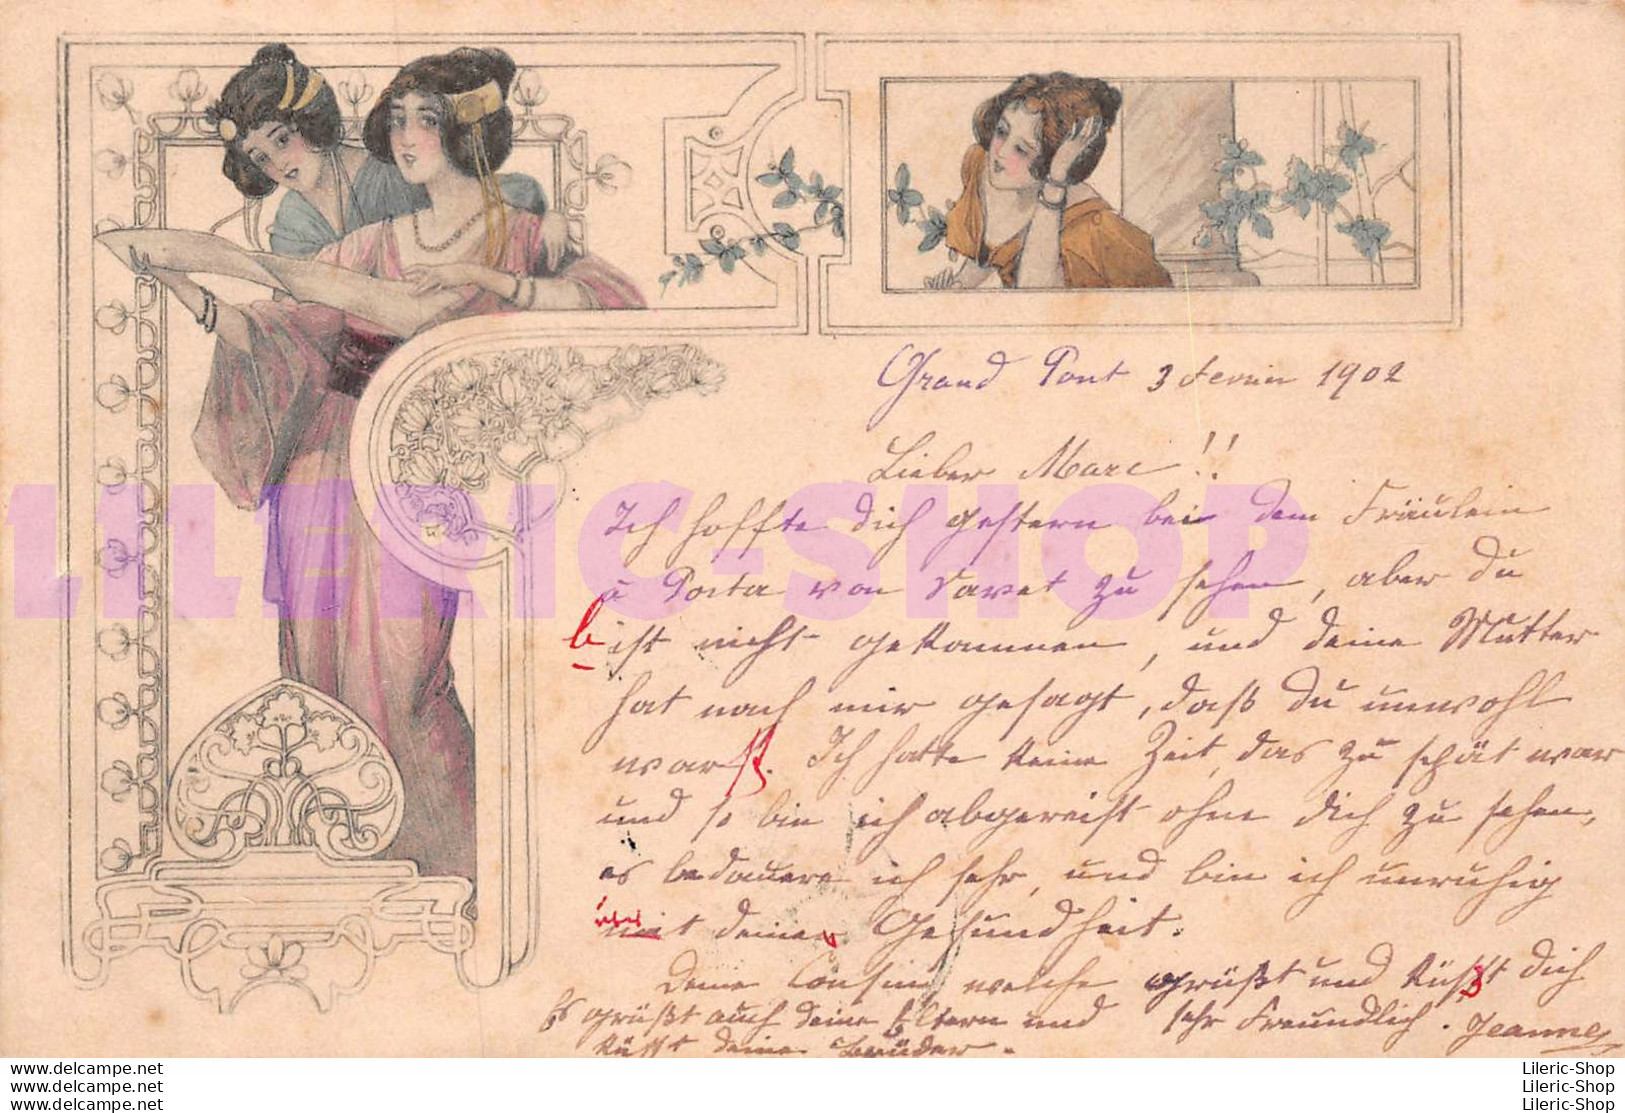 Grand Pont 3 Fevrier 1902
Lieber Marc!!
Ich hoffte dich gestern bei dem Fräulein
à Porta von Savet zu sehen, aber du
bist nicht gekommen, und deine Mutter
hat nach mir gesagt, daß Du unwohl
warst. Ich hatte keine Zeit, das zu spät war
und so bin ich abgereist ohne dich zu sehen,
es bedauere ich sehr, und bin ich unruhig
mit deiner Gesundheit.
Deine Cousine welche grüßt und küßt dich
Es grüßt auch deine Eltern und sehr freundlich. Jeanne
küsst deine Brüder.
LILERIC-SHOP
www.delcampe.net
www.delcampe.net
www.delcampe.net
Lileric-Shop
Lileric-Shop
Lileric-Shop